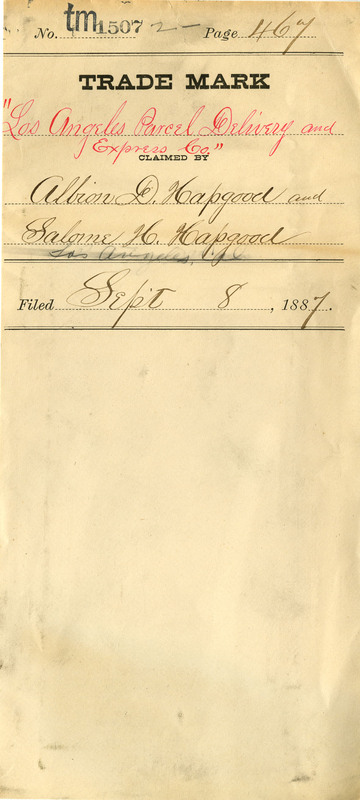 No. tm 1507 2- Page 467
TRADE MARK
"Los Angeles Parcel Delivery and
Express Co."
CLAIMED BY
Albion D. Hapgood and
Salome H. Hapgood
Los Angeles, Cal
Filed Sept 8, 1887.